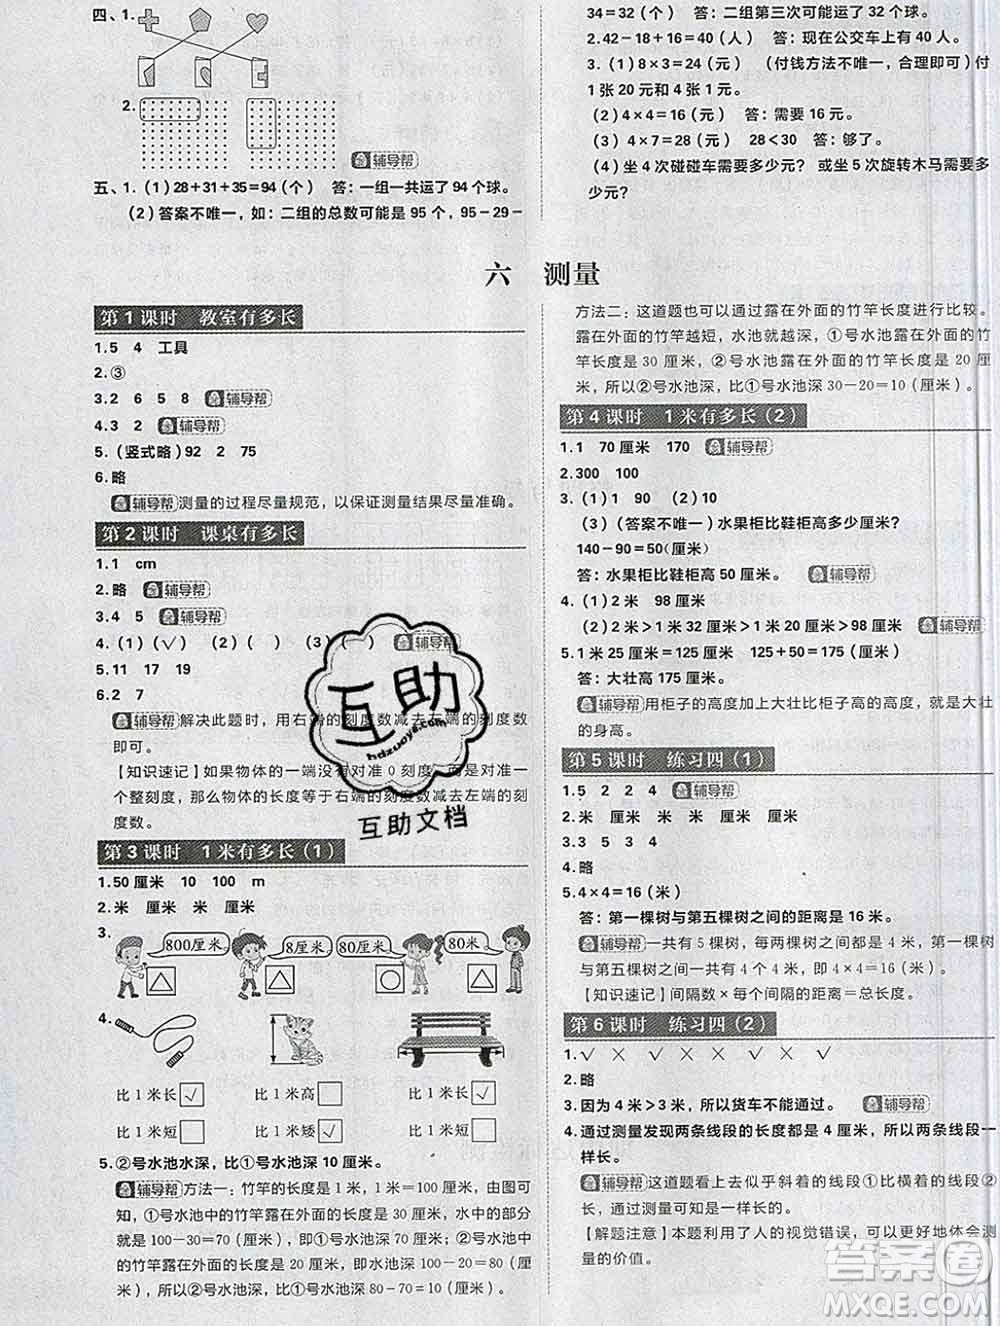 四、1.
2.
辅导帮
五、1.（1）28+31+35=94（个）　答：一组一共运了 94 个球。
（2）答案不唯一，如：二组的总数可能是 95 个，95-29-
34=32（个）　答：二组第三次可能运了 32 个球。
2.42-18+16=40（人）　答：现在公交车上有 40 人。
3.（1）8×3=24（元）　（付钱方法不唯一，合理即可）付
1 张 20 元和 4 张 1 元。
（2）4×4=16（元）　答：需要 16 元。
（3）4×7=28（元）　28<30　答：够了。
（4）坐 4 次碰碰车需要多少元？　或坐 5 次旋转木马需要多
少元？
六　测量
第 1 课时　教室有多长
1.5　4　工具
2.③
3.2　6　5　8　辅导帮
4.3　2　辅导帮
5.（竖式略）92　2　75
6.略
辅导帮 测量的过程尽量规范，以保证测量结果尽量准确。
第 2 课时　课桌有多长
1.1　cm
2.略　辅导帮
3.4　5　辅导帮
4.（1）（√）　（2）（　）　（3）（　）　辅导帮
5.11　17　19
6.2　7
辅导帮 解决此题时，用右端的刻度数减去左端的刻度数
即可。
【知识速记】如果物体的一端没有对准 0 刻度，而是对准某
一个整刻度，那么物体的长度等于右端的刻度数减去左端的刻
度数。
第 3 课时　1 米有多长（1）
1.50 厘米　10　100　m
2.米　厘米　米　厘米
3.
800厘米　8厘米　80厘米　80米
4.
比 1 米长 √　比 1 米高　比 1 米长 √
比 1 米短　比 1 米矮 √　比 1 米短
5.②号水池水深，比①号水池深 10 厘米。
辅导帮 方法一：竹竿的长度是 1 米，1 米=100 厘米，由图可
知，①号水池的竹竿露在外面的长度是 30 厘米，水中的部分
就是 100-30=70（厘米），即①号水池深 70 厘米；②号水池中
的竹竿露在外面的长度是 20 厘米，即水深 100-20=80（厘
米），所以②号水池深，比①号水池深 80-70=10（厘米）。
方法二：这道题也可以通过露在外面的竹竿长度进行比较。
露在外面的竹竿越短，水池就越深，①号水池露在外面的竹
竿长度是 30 厘米，②号水池露在外面的竹竿长度是 20 厘
米，所以②号水池深，比①号水池深 30-20=10（厘米）。
第 4 课时　1 米有多长（2）
1.1　70 厘米　170　辅导帮
2.300　100
3.（1）1　90　（2）10
（3）（答案不唯一）水果柜比鞋柜高多少厘米？
140-90=50（厘米）
答：水果柜比鞋柜高 50 厘米。　辅导帮
4.（1）2 米　98 厘米
（2）2 米>1 米 32 厘米>1 米 20 厘米>98 厘米　辅导帮
5.1 米 25 厘米=125 厘米　125+50=175（厘米）
答：大壮高 175 厘米。
辅导帮 用柜子的高度加上大壮比柜子高的高度，就是大壮
的身高。
第 5 课时　练习四（1）
1.5　2　2　4　辅导帮
2.米　厘米　米　米　厘米　厘米
3.3　5　3
4.略
5.4×4=16（米）
答：第一棵树与第五棵树之间的距离是 16 米。
辅导帮 一共有 5 棵树，每两棵树之间的距离是 4 米，第一棵
树与第五棵树之间共有 4 个 4 米，即 4×4=16（米）。
【知识速记】间隔数×每个间隔的距离=总长度。
第 6 课时　练习四（2）
1.√　×　×　√　×　√　√
2.略
3.因为 4 米>3 米，所以货车不能通过。　辅导帮
4.通过测量发现两条线段的长度都是 4 厘米，所以两条线段
一样长。
辅导帮 这道题看上去似乎斜着的线段①比横着的线段②
长，通过测量可知是一样长的。
【解题注意】本题利用了人的视觉错误，可以更好地体会测
量的价值。
互助
hdzuoye.com
互助文档
答案圈
MXQE.COM